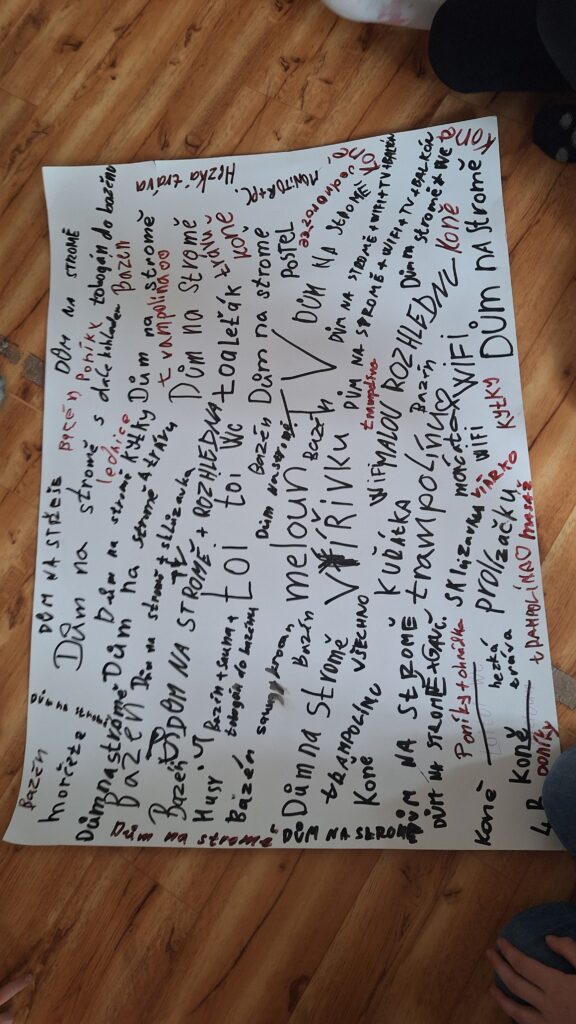 DŮM NA STŘEŠE
DŮM NA STROMĚ
Bazén Poníky
Dům na stromě s
tobogán do bazénu
lednice
Bazén
Dům na stromě kytky
Dům na stromě
Dům na stromě
trampolína
Hezká tráva
Bazén
morčete
Dům na stromě
Bazén
Dům na stromě + skluzavka
Bazén
TV
DŮM NA STROMĚ + ROZHLEDNA
Dům na stromě
Husy
Bazén + sauna +
tobogán do bazénu
toi toi WC
toaleťák
koně
Bazén
Bazén
Dům na stromě
POSTEL
MONITOR + PC
meloun
TV
DŮM NA STROMĚ
Dům na stromě
Bazén
VÍŘIVKU
Bazén
DŮM NA STROMĚ
DŮM NA STROMĚ + WIFI + TV + BALKÓN
TRAMPOLÍNU
VŠECHNO
trampolína
DŮM NA STROMĚ + WIFI + TV + BALKÓN
Koně
KUŘÁTKA
WIFI
MALOU ROZHLEDNU
DŮM NA STROMĚ
trampolínu
Bazén
koně
DŮM NA STROMĚ + GAUČ
morčata
WIFI
DŮM NA STROMĚ
Poníky + ohrádka
SKluzavku
WIFI
KYTKY
koně
hezká
tráva
prolízačky
4.B
koně
TRAMPOLÍNA
masáž
poníky
Dům na stromě
DŮM NA STROMĚ
Koně